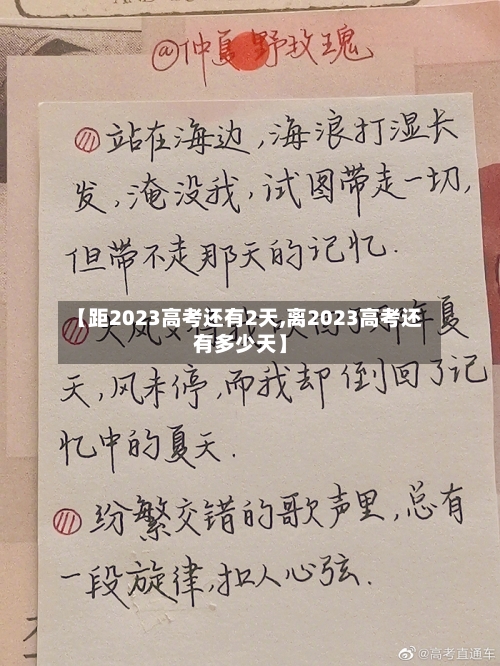 @仲夏野玫瑰
站在海边,海浪打湿长
发,淹没我,试图带走一切,
但带不走那天的记忆.
【距2023高考还有2天,离2023高考还
有多少天】
天,风未停,而我却倒回了记
忆中的夏天.
纷繁交错的歌声里,总有
一段旋律,扣人心弦.
@高考直通车